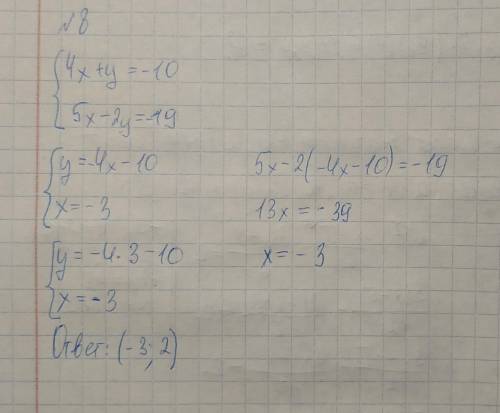 №8
4x+y=-10
5x-2y=-19
y=-4x-10
x=-3
5x-2(-4x-10)=-19
13x=-39
x=-3
y=-4·3-10
x=-3
Ответ: (-3; 2)